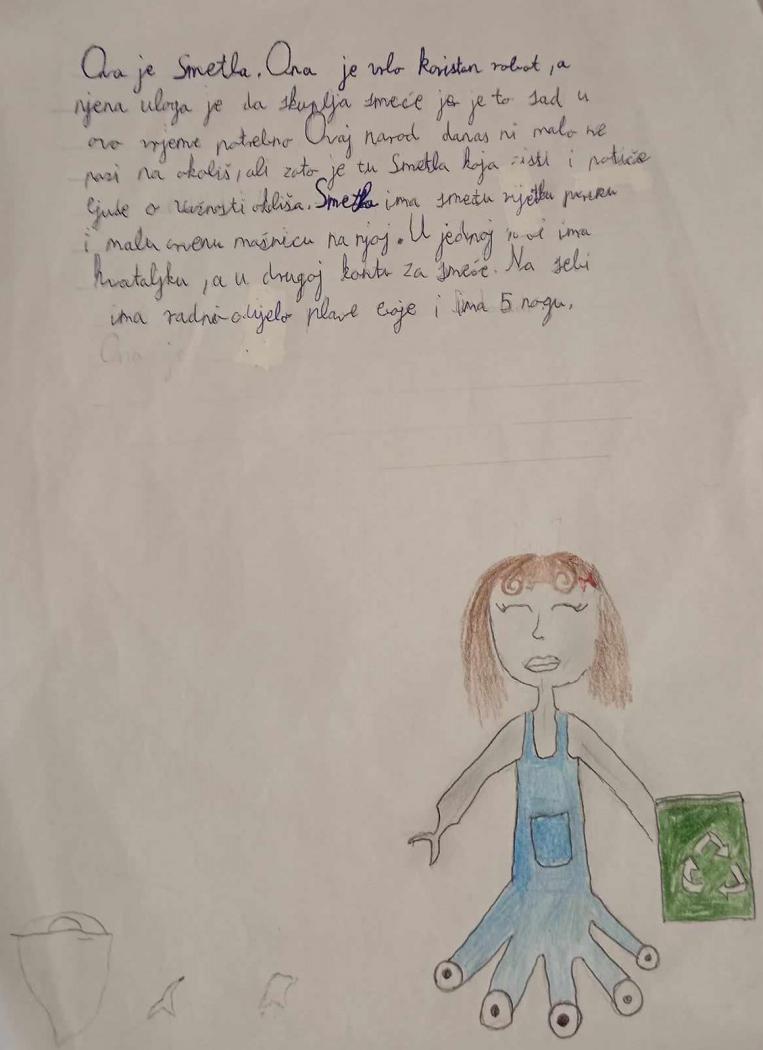 Ova je Smetla. Ona je vrlo koristan robot, a
njena uloga je da skuplja smeće jer je to sad u
ovo vrijeme potrebno Ovaj narod danas ni malo ne
pazi na okoliš, ali zato je tu Smetla koja čisti i potiče
ljude o važnosti okliša. Smetla ima smeđu rijetku periku
i malu crvenu mašnicu na njoj. U jednoj ruci ima
hvataljku, a u drugoj kantu za smeće. Na sebi
ima radno odijelo plave boje i ima 5 nogu.
Ona je